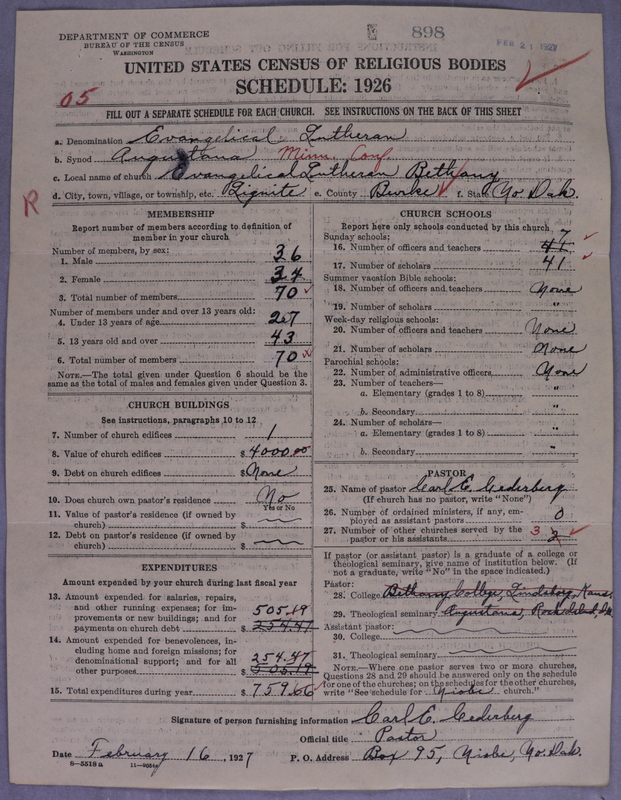 DEPARTMENT OF COMMERCE
BUREAU OF THE CENSUS
WASHINGTON
898
FEB 21 1927
UNITED STATES CENSUS OF RELIGIOUS BODIES
SCHEDULE: 1926
05
FILL OUT A SEPARATE SCHEDULE FOR EACH CHURCH. SEE INSTRUCTIONS ON THE BACK OF THIS SHEET
a. Denomination Evangelical Lutheran
b. Synod Augustana Minn. Conf.
c. Local name of church Evangelical Lutheran Bethany
d. City, town, village, or township, etc. Lignite e. County Burke f. State No. Dak.
R
MEMBERSHIP
Report number of members according to definition of member in your church
Number of members, by sex:
1. Male 36
2. Female 34
3. Total number of members 70
Number of members under and over 13 years old:
4. Under 13 years of age 27
5. 13 years old and over 43
6. Total number of members 70
NOTE.—The total given under Question 6 should be the
same as the total of males and females given under Question 3.
CHURCH BUILDINGS
See instructions, paragraphs 10 to 12
7. Number of church edifices 1
8. Value of church edifices $4000.00
9. Debt on church edifices $None
10. Does church own pastor's residence No
Yes or No
11. Value of pastor's residence (if owned by
church) $
12. Debt on pastor's residence (if owned by
church) $
EXPENDITURES
Amount expended by your church during last fiscal year
13. Amount expended for salaries, repairs,
and other running expenses; for im-
provements or new buildings; and for 505.19
payments on church debt $254.47
14. Amount expended for benevolences, in-
cluding home and foreign missions; for
denominational support; and for all 254.47
other purposes $505.19
15. Total expenditures during year $759.66
CHURCH SCHOOLS
Report here only schools conducted by this church
Sunday schools: 7
16. Number of officers and teachers 41
17. Number of scholars 41
Summer vacation Bible schools:
18. Number of officers and teachers None
19. Number of scholars "
Week-day religious schools:
20. Number of officers and teachers None
21. Number of scholars None
Parochial schools:
22. Number of administrative officers None
23. Number of teachers—
a. Elementary (grades 1 to 8) "
b. Secondary "
24. Number of scholars—
a. Elementary (grades 1 to 8) "
b. Secondary "
PASTOR
25. Name of pastor Carl E. Cederberg
(If church has no pastor, write "None")
26. Number of ordained ministers, if any, em-
ployed as assistant pastors 0
27. Number of other churches served by the
pastor or his assistants 3 2
If pastor (or assistant pastor) is a graduate of a college or
theological seminary, give name of institution below. (If
not a graduate, write "No" in the space indicated.)
Pastor:
28. College Bethany College, Lindsborg, Kans.
29. Theological seminary Augustana, Rock Island, Ill.
Assistant pastor:
30. College
31. Theological seminary
NOTE.—Where one pastor serves two or more churches,
Questions 28 and 29 should be answered only on the schedule
for one of the churches; on the schedules for the other churches,
write "See schedule for Niobe church."
Signature of person furnishing information Carl E. Cederberg
Official title Pastor
Date February 16, 1927 P. O. Address Box 95, Niobe, No. Dak.
8—5518 a